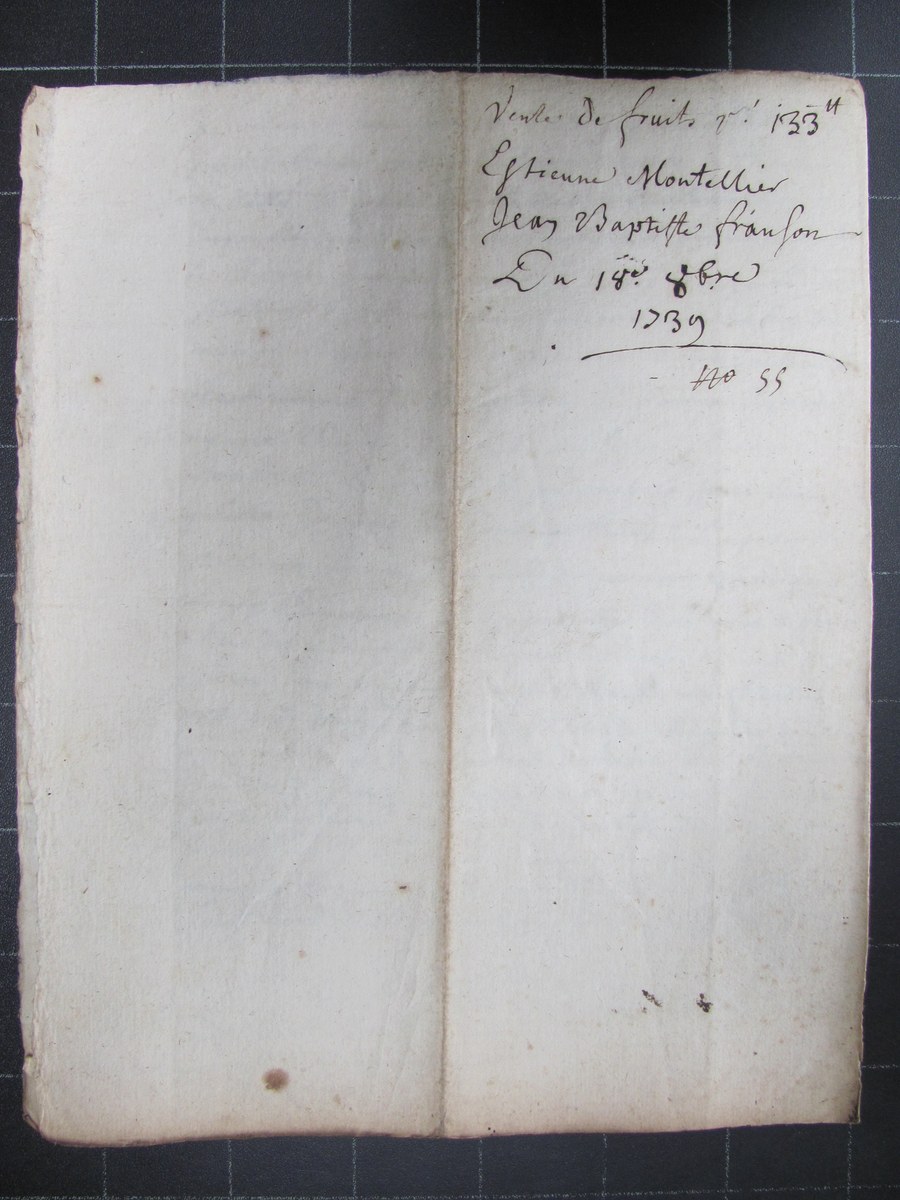 Vente de fruits pr. 133 tt
Estienne Montellier
Jean Baptiste franson
Du 18e 8bre
1739
No 55